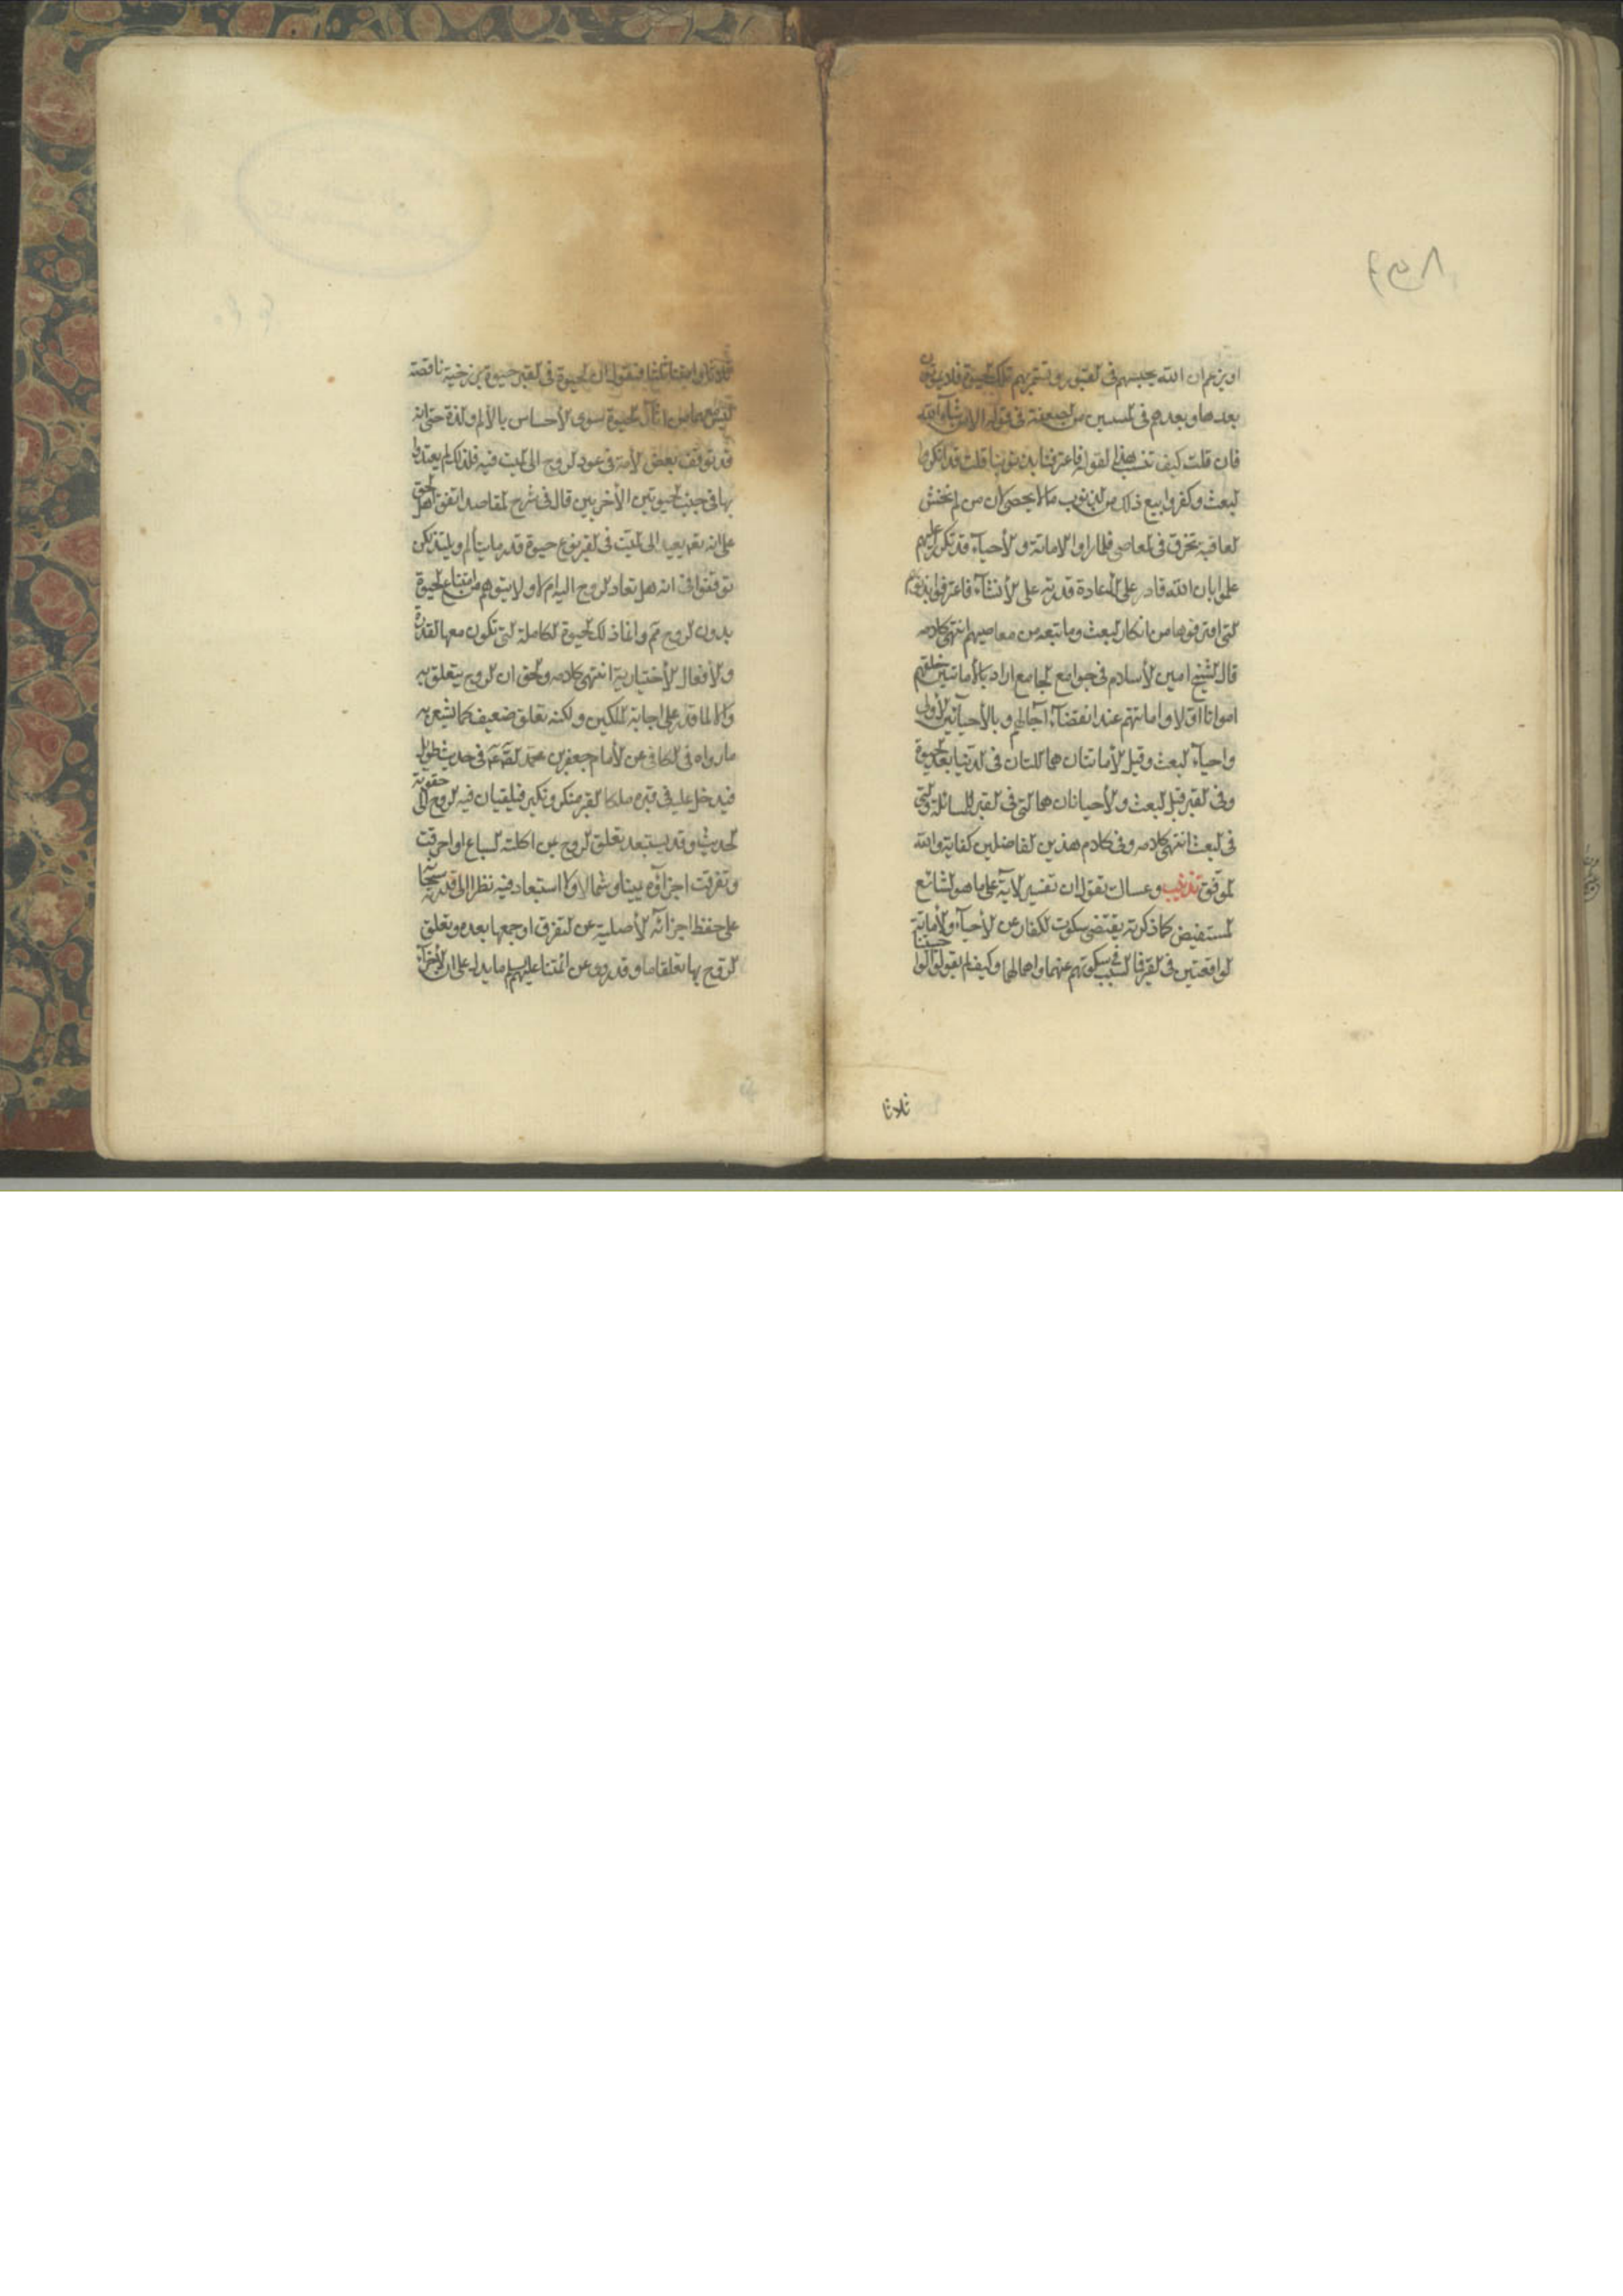 او يزعم ان الله يحييهم فى القبور وتستمر بهم تلك الحيوة فلا يموتون
بعدها ويعدهم فى المستثنين من الصعقة فى قوله الا من شاء الله
فان قلت كيف تسبب هذا لقوله فاعترفنا بذنوبنا قلت قد انكروا
البعث وكفروا وتبع ذلك من الذنوب ما لا يحصى لان من لم يخش
العاقبة تخرق فى المعاصى فلما راوا الاماتة والاحياء قد تكرر عليهم
علموا بان الله قادر على الاعادة قدرته على الانشاء فاعترفوا بذنوبهم
التى اقترفوها من انكار البعث وما تبعه من معاصيهم انتهى كلامه
قال الشيخ امين الاسلام فى جوامع الجامع اراد بالاماتتين خلقهم
امواتا اولا واماتتهم عند انقضاء آجالهم وبالاحيائين الاولى
واحياء البعث وقيل الاماتتان هما اللتان فى الدنيا بعد الحيوة
وفى القبر قبل البعث والاحياءان هما التى فى القبر للمسائلة والتى
فى البعث انتهى كلامه وفى كلام هذين الفاضلين كفاية والله
الموفق تذنيب وعساك تقول ان تفسير الآية على ما هو الشائع
المستفيض كما ذكرته يقتضى سكوت الكفار عن الاحياء والاماتة
الواقعتين فى القبر فما السبب فى سكوتهم عنهما واهمالهما وكيف لم يقولوا احييتنا
ثلاثا
ثلاثا وامتنا ثلثا فنقول ان الحيوة فى القبر حيوة برزخية ناقصة
ليس معها من آثار الحيوة سوى الاحساس بالالم واللذة حتى انه
قد توقف بعض الامة فى عود الروح الى الميت فيه فلذلك لم يعتدوا
بها فى جنب الحيوتين الاخريين قال فى شرح المقاصد اتفق اهل الحق
على انه تعه يعيد الى الميت فى القبر نوع حيوة قدر ما يتألم ويلتذ لكن
توقفوا فى انه هل تعاد الروح اليه ام لا ولا يتوهم من امتناع الحيوة
بدون الروح ثم وانما ذلك الحيوة الكاملة التى تكون معها القدرة
والافعال الاختيارية انتهى كلامه والحق ان الروح يتعلق به
والا لما قدر على اجابة الملكين ولكنه تعلق ضعيف كما يشعر به
ما رواه فى الكافى عن الامام جعفر بن محمد الصادق فى حديث طويل
فيدخل عليه فى قبره ملكا القبر منكر ونكير فيلقيان فيه الروح الى حقويه
الحديث وقد يستبعد تعلق الروح بمن اكلته السباع او احرقت
وتفرقت اجزاؤه يمينا وشمالا ولا استبعاد فيه نظرا الى قدرته سبحانه
على حفظ اجزائه الاصلية عن التفرق او جمعها بعده وتعلق
الروح بها تعلقا ما وقد روى عن ائمتنا عليهم السلم ما يدل على ان الاجزاء